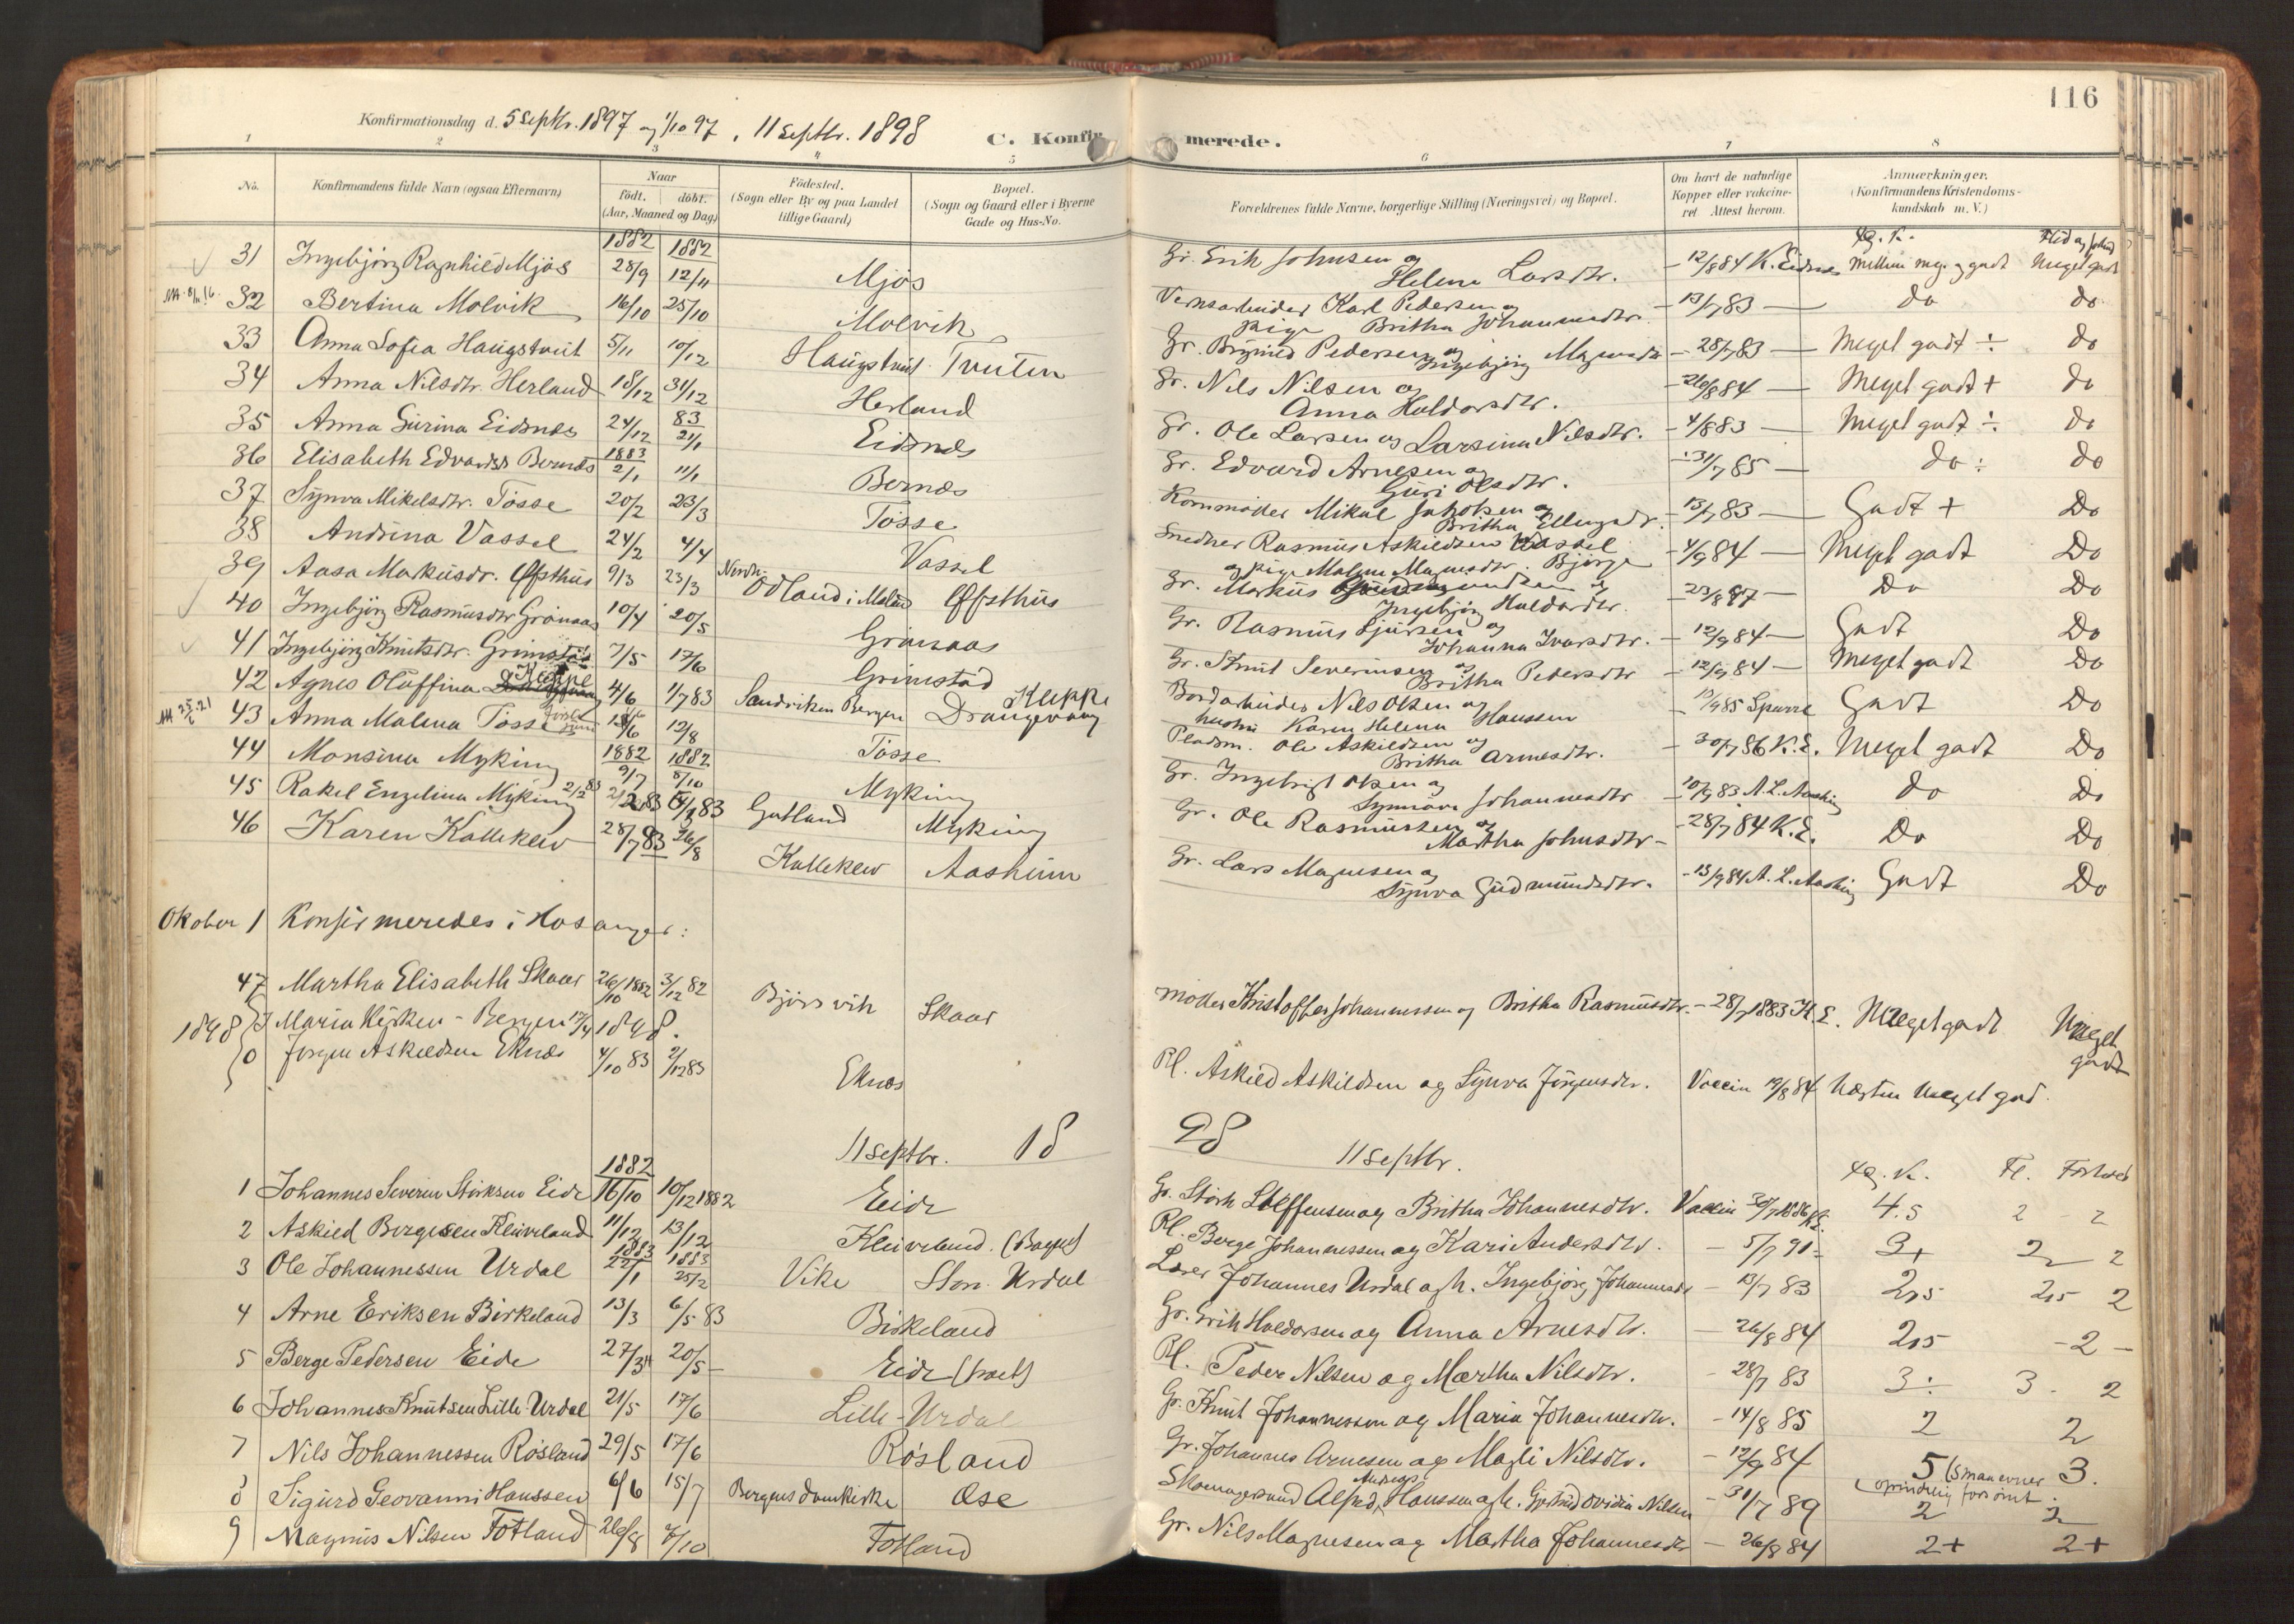 116
Konfirmationsdag d. 5 Septbr. 1897 og 1/10 97, 11 Septbr. 1898
C. Konfirmerede.
1 2 3 4 5 6 7 8
No. Konfirmandens fulde Navn (ogsaa Efternavn) Naar Födt. döbt. (Aar, Maaned og Dag) Födested. (Sogn eller By og paa Landet tillige Gaard) Bopæl. (Sogn og Gaard eller i Byerne Gade og Hus-No. Forældrenes fulde Navne, borgerlige Stilling (Næringsvei) og Bopæl. Om havt de naturlige Kopper eller vakcineret Attest herom. Anmærkninger. (Konfirmandens Kristendomskundskab m. V.)
1882 1882
31 Ingebjörg Ragnhild Mjös 28/9 12/11 Mjös Gr. Erik Johnsen og Helena Larsdtr. - 12/8 84 K. Eidsnes Mellem meg. og godt Meget godt
32 Bertina Molvik 16/10 25/10 Molvik Karl Pedersen og pige Britha Johannesdtr. - 13/7 83 - do do
33 Anna Sofia Haugstveit 5/11 10/12 Haugstveit Tveiten Gr. Brynild Pedersen og Ingebjörg Magnesdtr - 28/7 83 - Meget godt ÷ do
34 Anna Nilsdtr. Herland 18/12 31/12 Herland Gr. Nils Nilsen og Anna Haldorsdtr. - 26/8 84 - Meget godt + do
35 Anna Surina Eidsnes 24/12 83 21/1 Eidsnes Gr. Ole Larsen og Larsina Nilsdtr. - 4/8 83 - Meget godt ÷ do
36 Elisabeth Edvardsd. Bernes 1883 2/1 11/1 Bernes Gr. Edvard Arnesen og Guri Olsdtr. - 31/7 85 - do ÷ do
37 Synva Mikelsdtr. Tösse 20/2 23/3 Tösse Mikal og Britha - 13/7 83 - Godt + Do
38 Andrina Vassel 24/2 4/4 Vassel Snedker Rasmus Askildsen Vassel og pige Malene Magnesdtr. Bjørge - 4/9 84 - Meget godt Do
39 Aasa Markusdr. Offsthus 9/3 23/3 Nordr. Odland i Offsthus Gr. Markus og Ingebjörg Haldorsdtr. - 23/8 97 - Do Do
40 Ingebjörg Rasmusdtr Grönaas 10/4 20/5 Grönaas Gr. Rasmus Sjursen og Johanna Ivarsdtr. - 12/9 84 - Godt Do
41 Ingebjörg Knutsdtr. Grimstad 7/5 17/6 Grimstad Gr. Knut Severinsen og Britha Pedersdtr - 12/9 84 - Meget godt Do
42 Agnes Oluffina Kleppe 4/6 1/7 83 Sandviken Bergen Kleppe Drangevaag Nils Olsen og hustru Karen Helena Hanssen - 15/9 85 Sparre Godt Do
43 Anna Malena Tösse 18/6 12/8 Tösse Pladsm. Ole Askildsen og Britha Arnesdtr. - 30/7 86 K.E. Meget godt Do
44 Monsina Myking 1882 9/7 1882 8/10 Myking Gr. Ingebrigt Olsen og Synnöva Johannesdtr - 10/9 83 do Do
45 Rakel Engelina Myking 2/2 83 Gotland Myking Gr. Ole Rasmussen og Martha Johnsdtr - 28/7 84 K.E. Do Do
46 Karen Kallekleiv 28/7 83 26/8 Kallekleiv Aasheim Gr. Lars Magnesen og Synva Gudmundsdtr. - 13/9 84 Godt Do
Oktober 1 Konfirmeredes i Hosanger:
47 Martha Elisabeth Skaar 26/10 1882 3/12 82 Björsvik Skaar Möller Kristoffer Johannessen og Britha Rasmusdtr. - 28/7 1883 K.E. Meget godt Meget godt
1898 Maria - Bergen 17/4 1898.
0 Jörgen Askildsen Eknes 4/10 83 2/12 83 Eknes Pl. Askild Askildsen og Synva Jörgensdtr. Vaccin 19/8 84 Næsten meget god.
11 Septbr. 18 98 11 Septbr.
1882 Kr. K. Fl. Forhold
1 Johannes Severin Störksen Eide 16/10 10/12 1882 Eide Gr. Störk Steffensen og Britha Johannesdtr. Vaccin 30/7 1886 K.E. 4.5 2 - 2
2 Askild Bergesen Kleivland 11/12 13/12 Kleivland. Pl. Berge Johannessen og Kari Andersdtr. - 5/7 91 - 3+ 2 2
3 Ole Johannessen Urdal 1883 22/1 1883 25/2 Vike Stor. Urdal Lærer Johannes Urdal og h. Ingebjörg Johannesdtr - 13/7 83 2,5 2,5 2
4 Arne Eriksen Birkeland 13/3 6/5 83 Birkeland Gr. Erik Haldorsen og Anna Arnesdtr. - 26/8 84 2,5 - 2 -
5 Berge Pedersen Eide 27/3 20/5 - Eide Pl. Peder Nilsen og Martha Nilsdtr. - 28/7 83 3 ÷ 3 - 2
6 Johannes Knutsen Lille-Urdal 21/5 17/6 Lille-Urdal Gr. Knut Johannessen og Maria Johannesdtr. - 14/8 85 2 2
7 Nils Johannessen Rösland 29/5 17/6 Rösland Gr. Johannes Arnesen og Magli Nilsdtr. - 12/9 84 5 (Smaa evner oprindelig forsömt. 3.
8 Sigurd Geovanni Hanssen 6/6 15/7 Bergens domkirke Ose Alfred Andreas Hanssen og h. Nilsen - 31/7 89 2 2
9 Magnus Nilsen Fotland 26/8 7/10 Fotland Gr. Nils Magnesen og Martha Johannesdtr - 26/8 84 2+ 2+